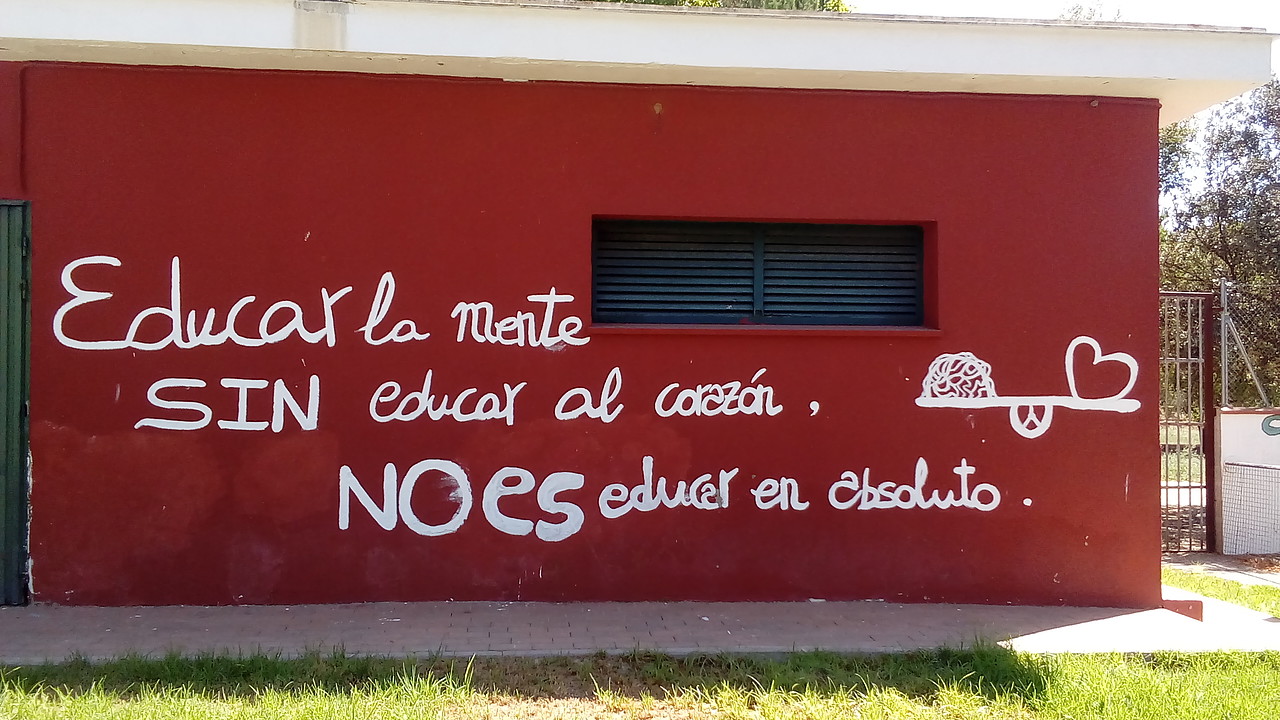 Educar la mente
SIN educar al corazón,
NO es educar en absoluto.